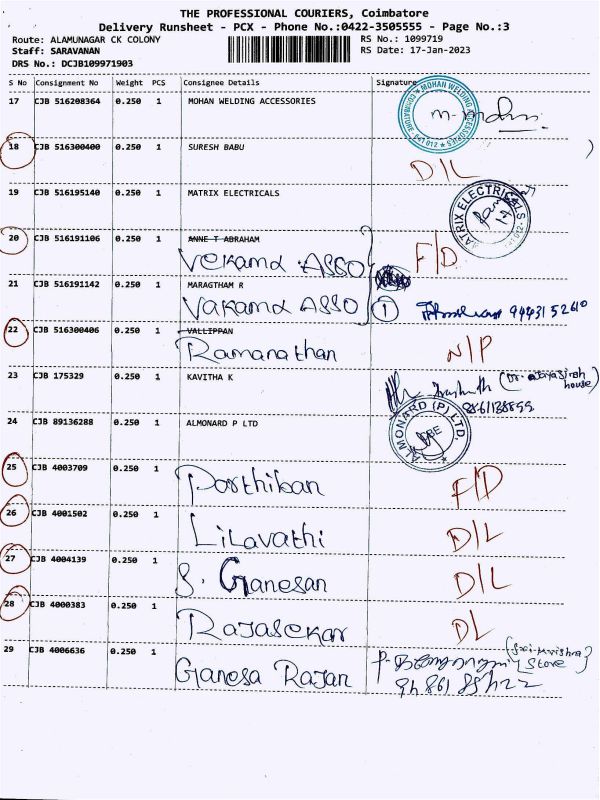 THE PROFESSIONAL COURIERS, Coimbatore
Delivery Runsheet - PCX - Phone No.:0422-3505555 - Page No.:3
Route: ALAMUNAGAR CK COLONY RS No.: 1099719
Staff: SARAVANAN RS Date: 17-Jan-2023
DRS No.: DCJB109971903
S No Consignment No Weight PCS Consignee Details Signature
17 CJB 516208364 0.250 1 MOHAN WELDING ACCESSORIES
MOHAN WELDING ACCESSORIES COIMBATORE 641 012
18 CJB 516300400 0.250 1 SURESH BABU D/L
19 CJB 516195140 0.250 1 MATRIX ELECTRICALS
MATRIX ELECTRICALS
20 CJB 516191106 0.250 1 ANNE T ABRAHAM F/D
Vekama Asso
21 CJB 516191142 0.250 1 MARAGTHAM R
Vakama Asso 1 9443152610
22 CJB 516300406 0.250 1 VALLIPPAN
Ramanathan N/P
23 CJB 175329 0.250 1 KAVITHA K
house)
24 CJB 89136288 0.250 1 ALMONARD P LTD
ALMONARD (P) LTD.
25 CJB 4003709 0.250 1 Parthiban F/D
26 CJB 4001502 0.250 1 Lilavathi D/L
27 CJB 4004139 0.250 1 S. Ganesan D/L
28 CJB 4000383 0.250 1 Rajasekar DL
29 CJB 4006636 0.250 1 Ganesa Rajan
(Sri Krishna
Store)